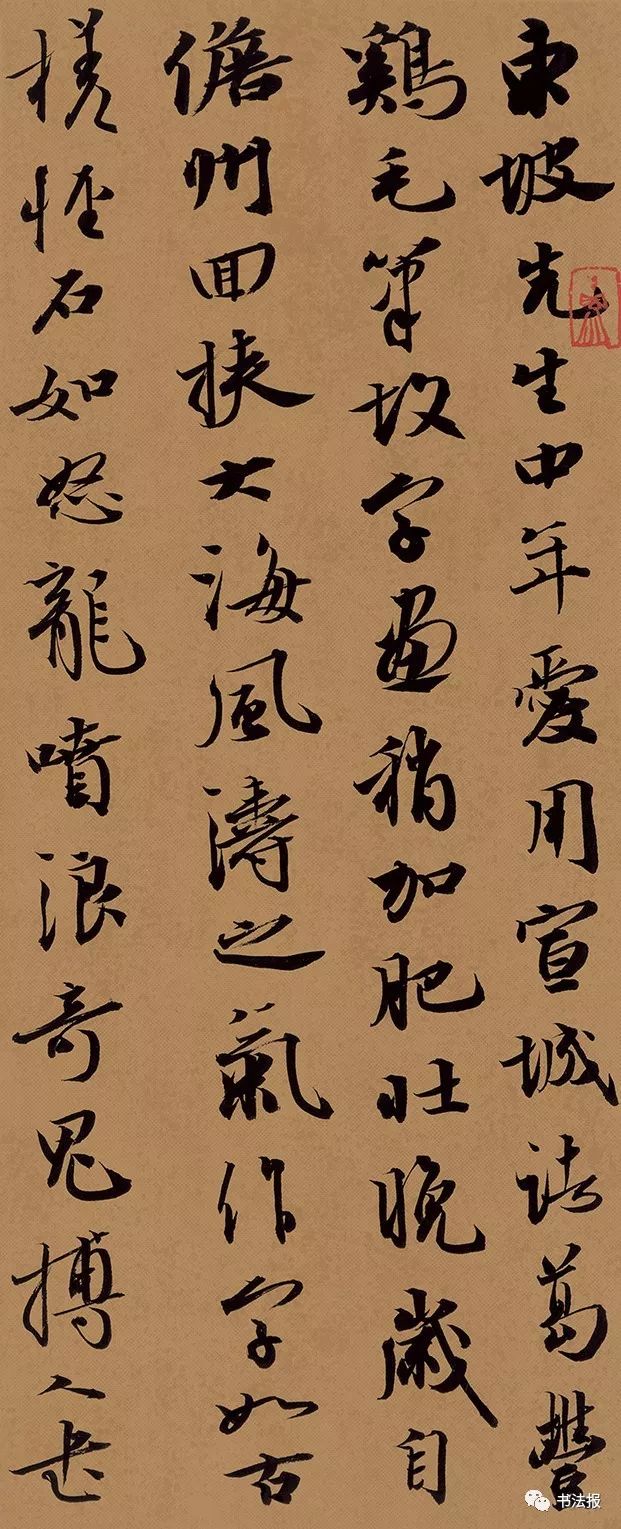 東坡先生中年愛用宣城諸葛豐
鷄毛筆故字畫稍加肥壯晚歲自
儋州回挾大海風濤之氣作字如古
槎怪石如怒龍噴浪奇鬼搏人書
书法报